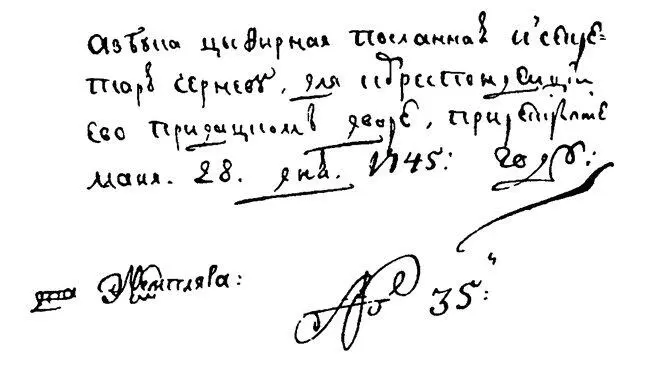 Азбука цыфирная посланная к секре=
тарю Черневу, для корреспонденцїи
ево при дацкомъ дворѣ, при рескриптѣ
маия. 28. дня. 1745: году:
два экземпляра: № 35: